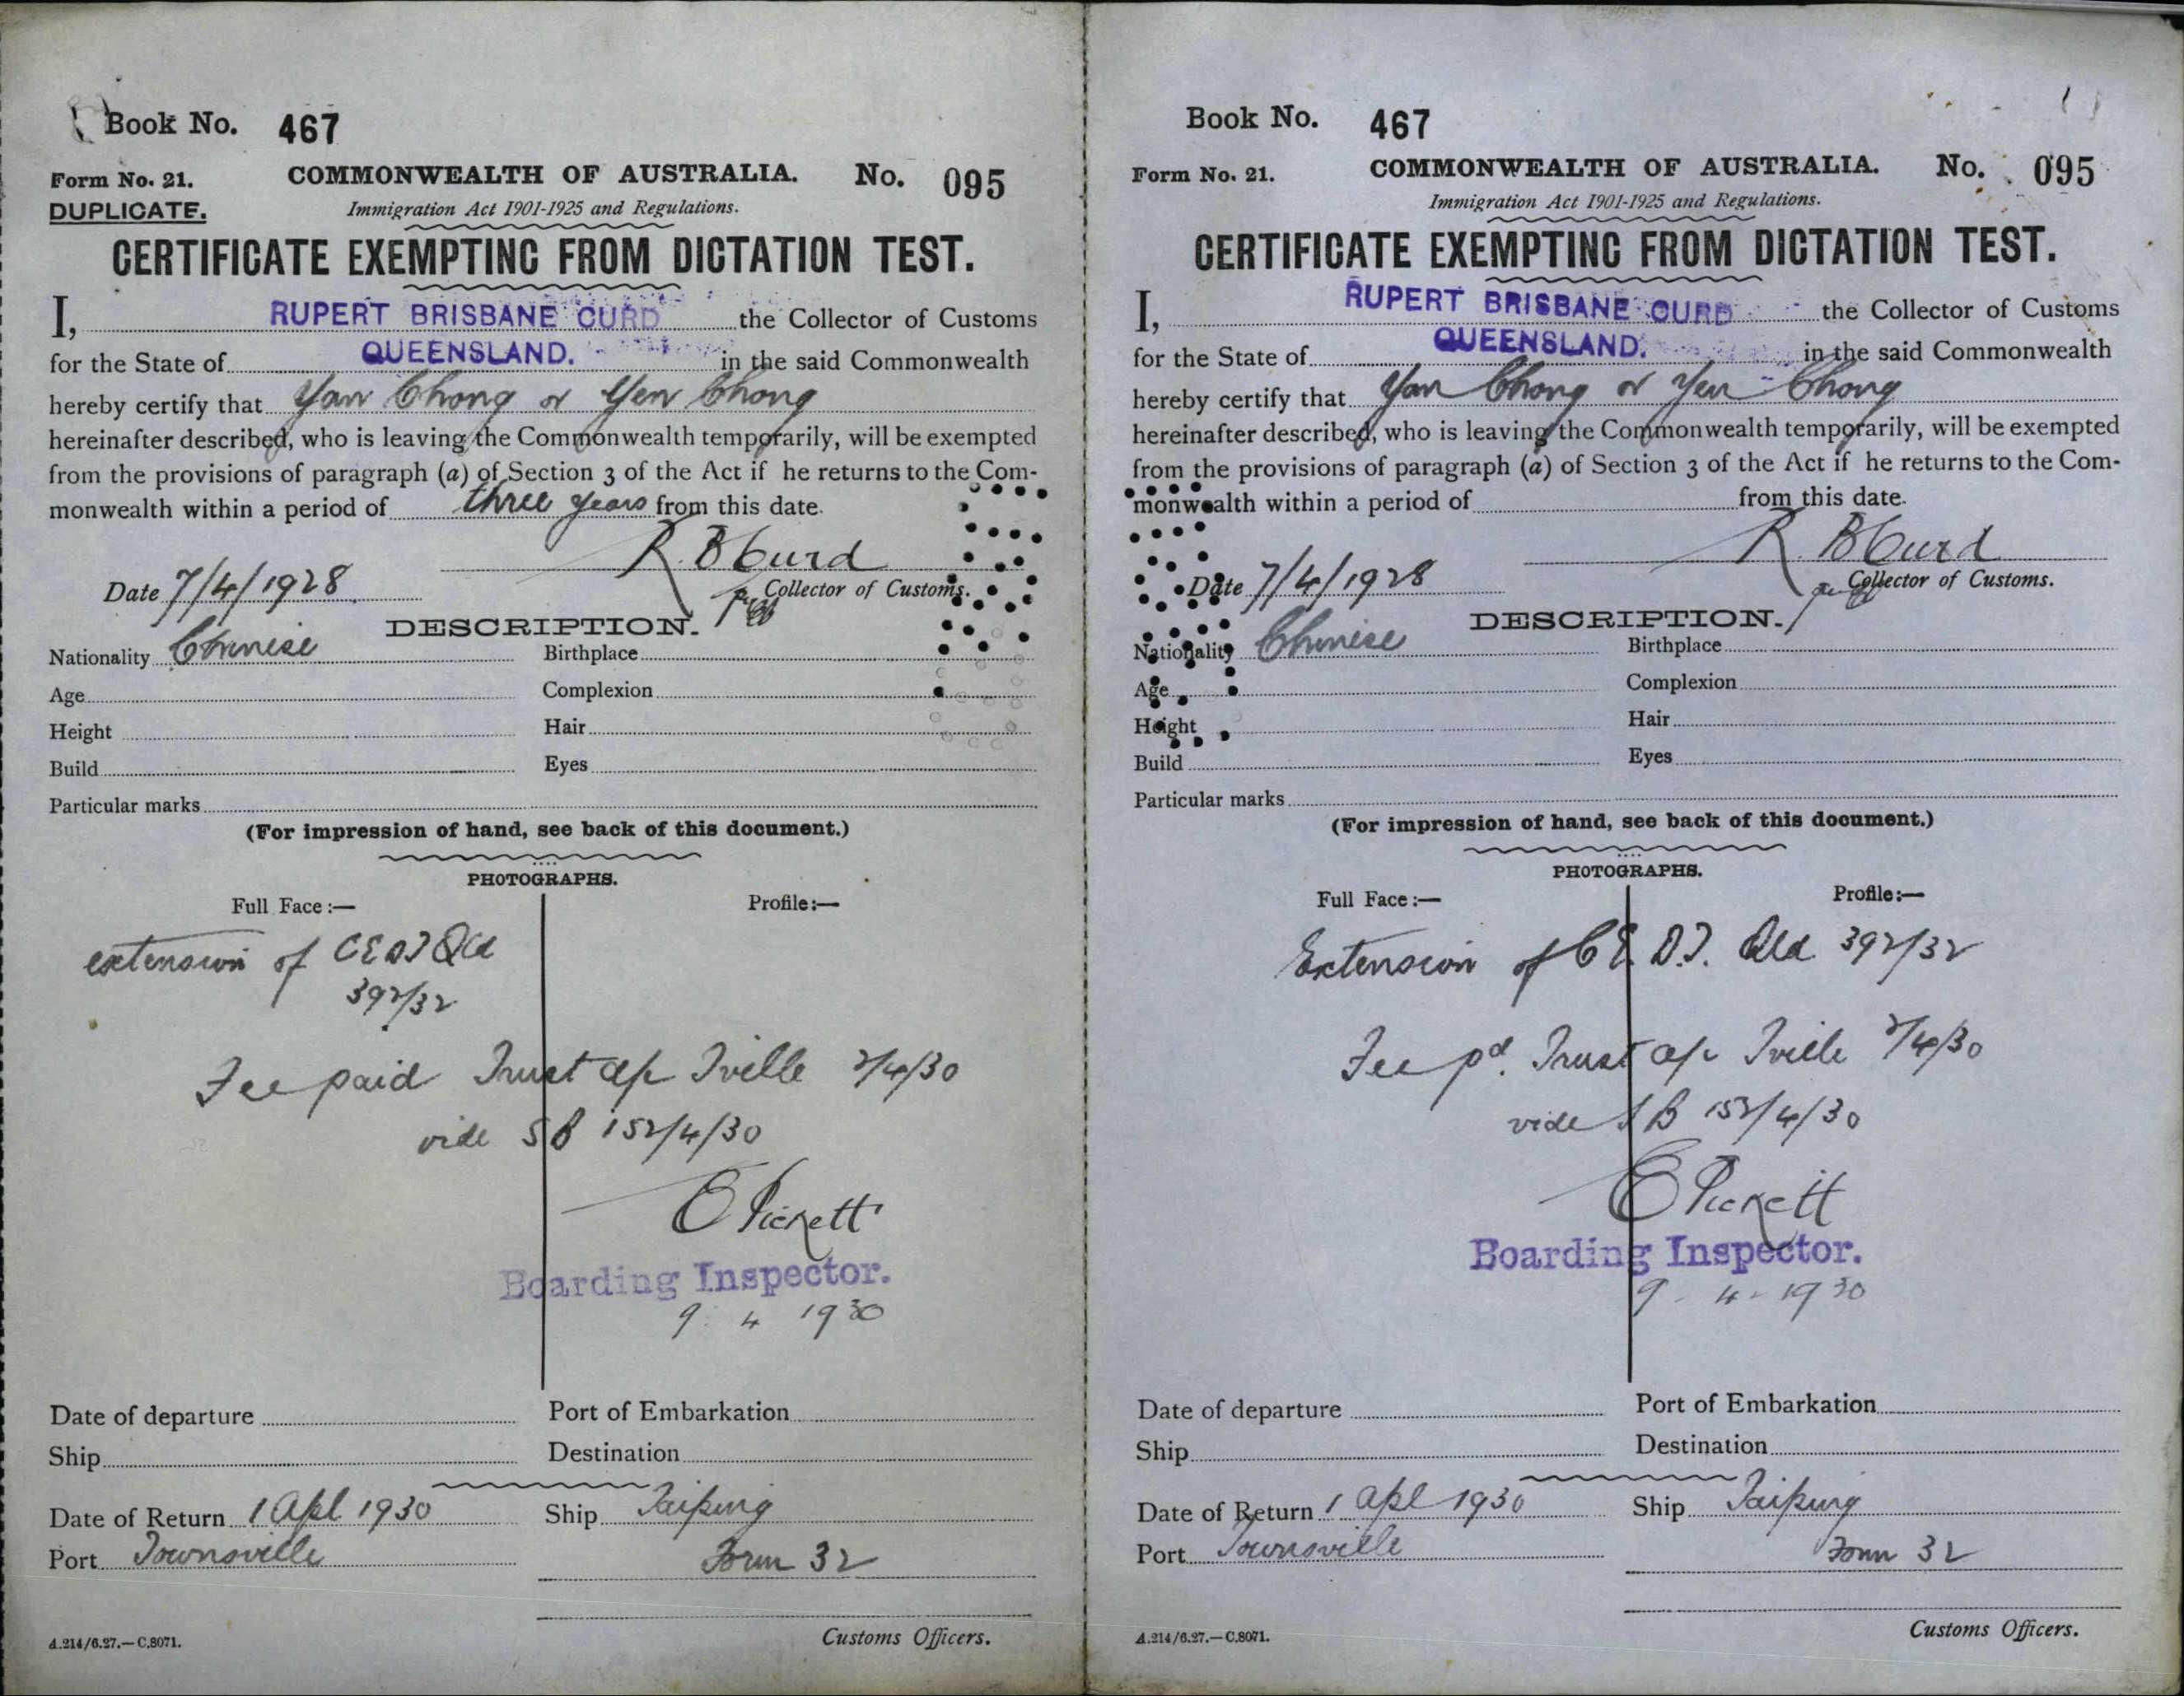 Book No. 467
Form No. 21. COMMONWEALTH OF AUSTRALIA. No. 095
DUPLICATE. Immigration Act 1901-1925 and Regulations.
CERTIFICATE EXEMPTING FROM DICTATION TEST.
I, RUPERT BRISBANE CURD the Collector of Customs
for the State of QUEENSLAND. in the said Commonwealth
hereby certify that Yan Chong or Yen Chong
hereinafter described, who is leaving the Commonwealth temporarily, will be exempted
from the provisions of paragraph (a) of Section 3 of the Act if he returns to the Com-
monwealth within a period of three years from this date.
R B Curd
Date 7/4/1928 Collector of Customs.
DESCRIPTION.
Nationality Chinese Birthplace
Age Complexion
Height Hair
Build Eyes
Particular marks
(For impression of hand, see back of this document.)
PHOTOGRAPHS.
Full Face :— Profile :—
extension of CEDT Qld
392/32
Fee paid Trust a/c Tville 2/4/30
vide SB 152/4/30
E Pickett
Boarding Inspector.
9 4 1930
Date of departure Port of Embarkation
Ship Destination
Date of Return 1 Apl 1930 Ship Taiping
Port Townsville Form 32
A.214/6.27.—C.8071. Customs Officers.
Book No. 467
Form No. 21. COMMONWEALTH OF AUSTRALIA. No. 095
Immigration Act 1901-1925 and Regulations.
CERTIFICATE EXEMPTING FROM DICTATION TEST.
I, RUPERT BRISBANE CURD the Collector of Customs
for the State of QUEENSLAND. in the said Commonwealth
hereby certify that Yan Chong or Yen Chong
hereinafter described, who is leaving the Commonwealth temporarily, will be exempted
from the provisions of paragraph (a) of Section 3 of the Act if he returns to the Com-
monwealth within a period of from this date.
R B Curd
Date 7/4/1928 Collector of Customs.
DESCRIPTION.
Nationality Chinese Birthplace
Age Complexion
Height Hair
Build Eyes
Particular marks
(For impression of hand, see back of this document.)
PHOTOGRAPHS.
Full Face :— Profile :—
Extension of C.E.D.T. Qld 392/32
Fee pd. Trust a/c Tville 2/4/30
vide SB 152/4/30
E Pickett
Boarding Inspector.
9-4-1930
Date of departure Port of Embarkation
Ship Destination
Date of Return 1 Apl 1930 Ship Taiping
Port Townsville Form 32
A.214/6.27.—C.8071. Customs Officers.